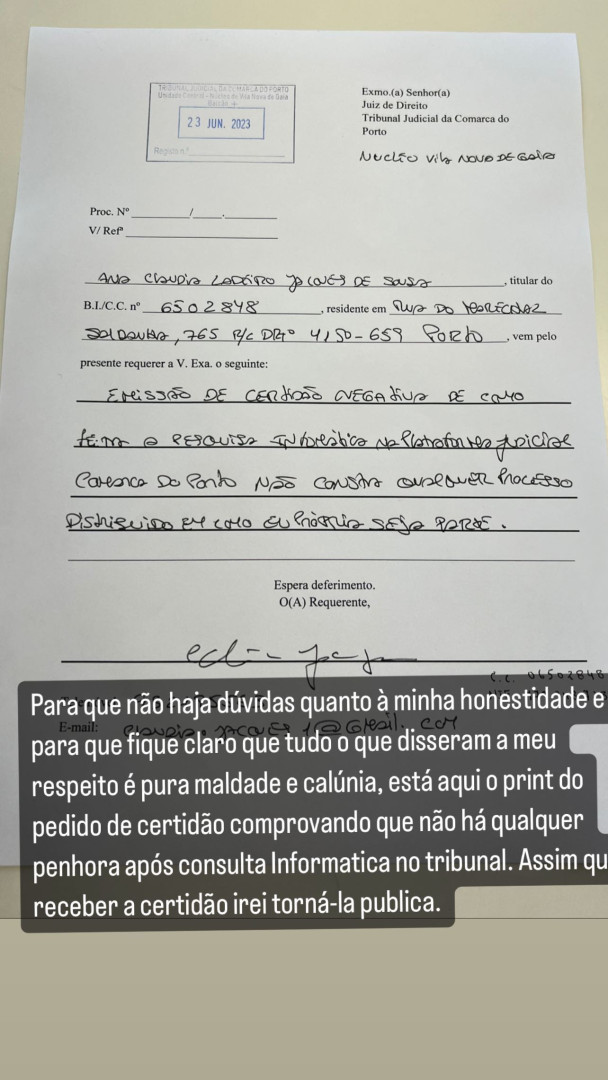 TRIBUNAL JUDICIAL DA COMARCA DO PORTO
Unidade Central - Núcleo de Vila Nova de Gaia
23 JUN. 2023
Registo n.º
Exmo.(a) Senhor(a)
Juiz de Direito
Tribunal Judicial da Comarca do
Porto
Nucleo Vila Nova de Gaia
Proc. Nº ______/____.____
V/ Refª
Ana Claudia Ladeiro Jacques de Sousa, titular do
B.I./C.C. nº 6502848, residente em Rua do Marechal
Saldanha, 765 R/C DRTº 4150-659 Porto, vem pelo
presente requerer a V. Exa. o seguinte:
Emissão de certidão negativa de como
feita a pesquisa informática na Plataforma judicial
Comarca do Porto não consta qualquer processo
distribuido em como eu própria seja parte.
Espera deferimento.
O(A) Requerente,
C.C. 06502848
E-mail: Claudia.Jacques1@Gmail.com
Para que não haja dúvidas quanto à minha honestidade e
para que fique claro que tudo o que disseram a meu
respeito é pura maldade e calúnia, está aqui o print do
pedido de certidão comprovando que não há qualquer
penhora após consulta Informatica no tribunal. Assim qu
receber a certidão irei torná-la publica.